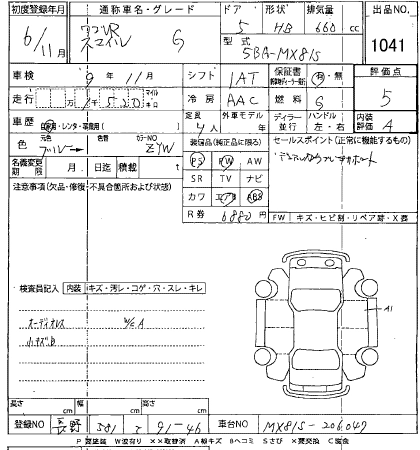 初度登録年月 通称車名・グレード ドア 形状 排気量 出品NO.
6/11月 ワゴンR スマイル G 5 HB 660 cc 1041
型式 5BA-MX81S
車検 9年11月 シフト IAT 保証書 有・無 評価点
走行 冷房 AAC 燃料 G 5
車歴 自家用・レンタ・ 定員 4人 外車モデル ディーラー 並行 ハンドル 左・右 内装評価 A
色 元色 ブルー 色替 カラーNO ZYW 装備品(純正品に限る) セールスポイント(正常に機能するもの)
名義変更期限 月 日迄 積載 t PS PW AW
注意事項(欠品・修復・不具合箇所および状態) SR TV ナビ
カワ エアB ABS
R券 6880円 FW キズ・ヒビ割・リペア跡・X要
検査員記入 内装 キズ・汚レ・コゲ・穴・スレ・キレ
オーディオレス W/C A
小キズB
A1
長さ 幅 高さ
cm cm cm
登録NO 長野 581 て 91-46 車台NO MX81S-206047
P要塗装 W波有り XX取替済 A線キズ Bヘコミ Sさび X要交換 C腐食